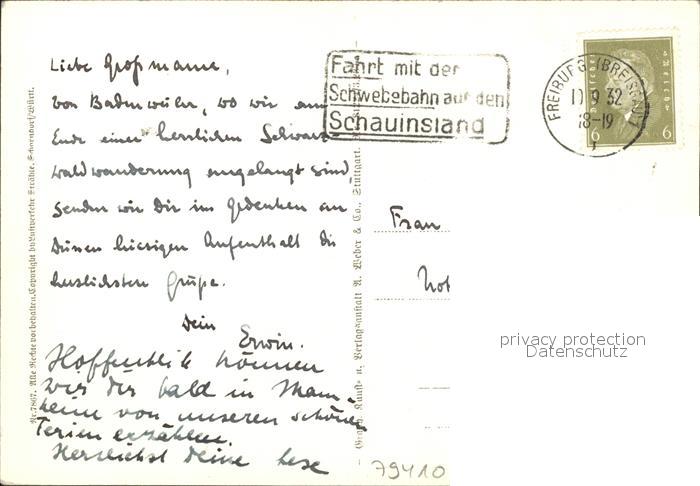 Liebe Großmama,
von Badenweiler, wo wir am
Ende einer herrlichen Schwarz-
waldwanderung angelangt sind,
senden wir Dir im Gedenken an
Deinen hiesigen Aufenthalt die
herzlichsten Grüße.
Dein
Erwin.
Hoffentlich können
wir dir bald in Mann-
heim von unseren schönen
Ferien erzählen.
Herzlichst Deine
Fahrt mit der
Schwebebahn auf den
Schauinsland
FREIBURG (BREISGAU)
9 32
18-19
6 6
Frau
Nr. 7867. Alle Rechte vorbehalten. Copyright by Luftverkehr Strähle, Schorndorf/Württ.
Graph. Kunst- u. Verlagsanstalt A. Weber & Co., Stuttgart.
privacy protection
Datenschutz
79410